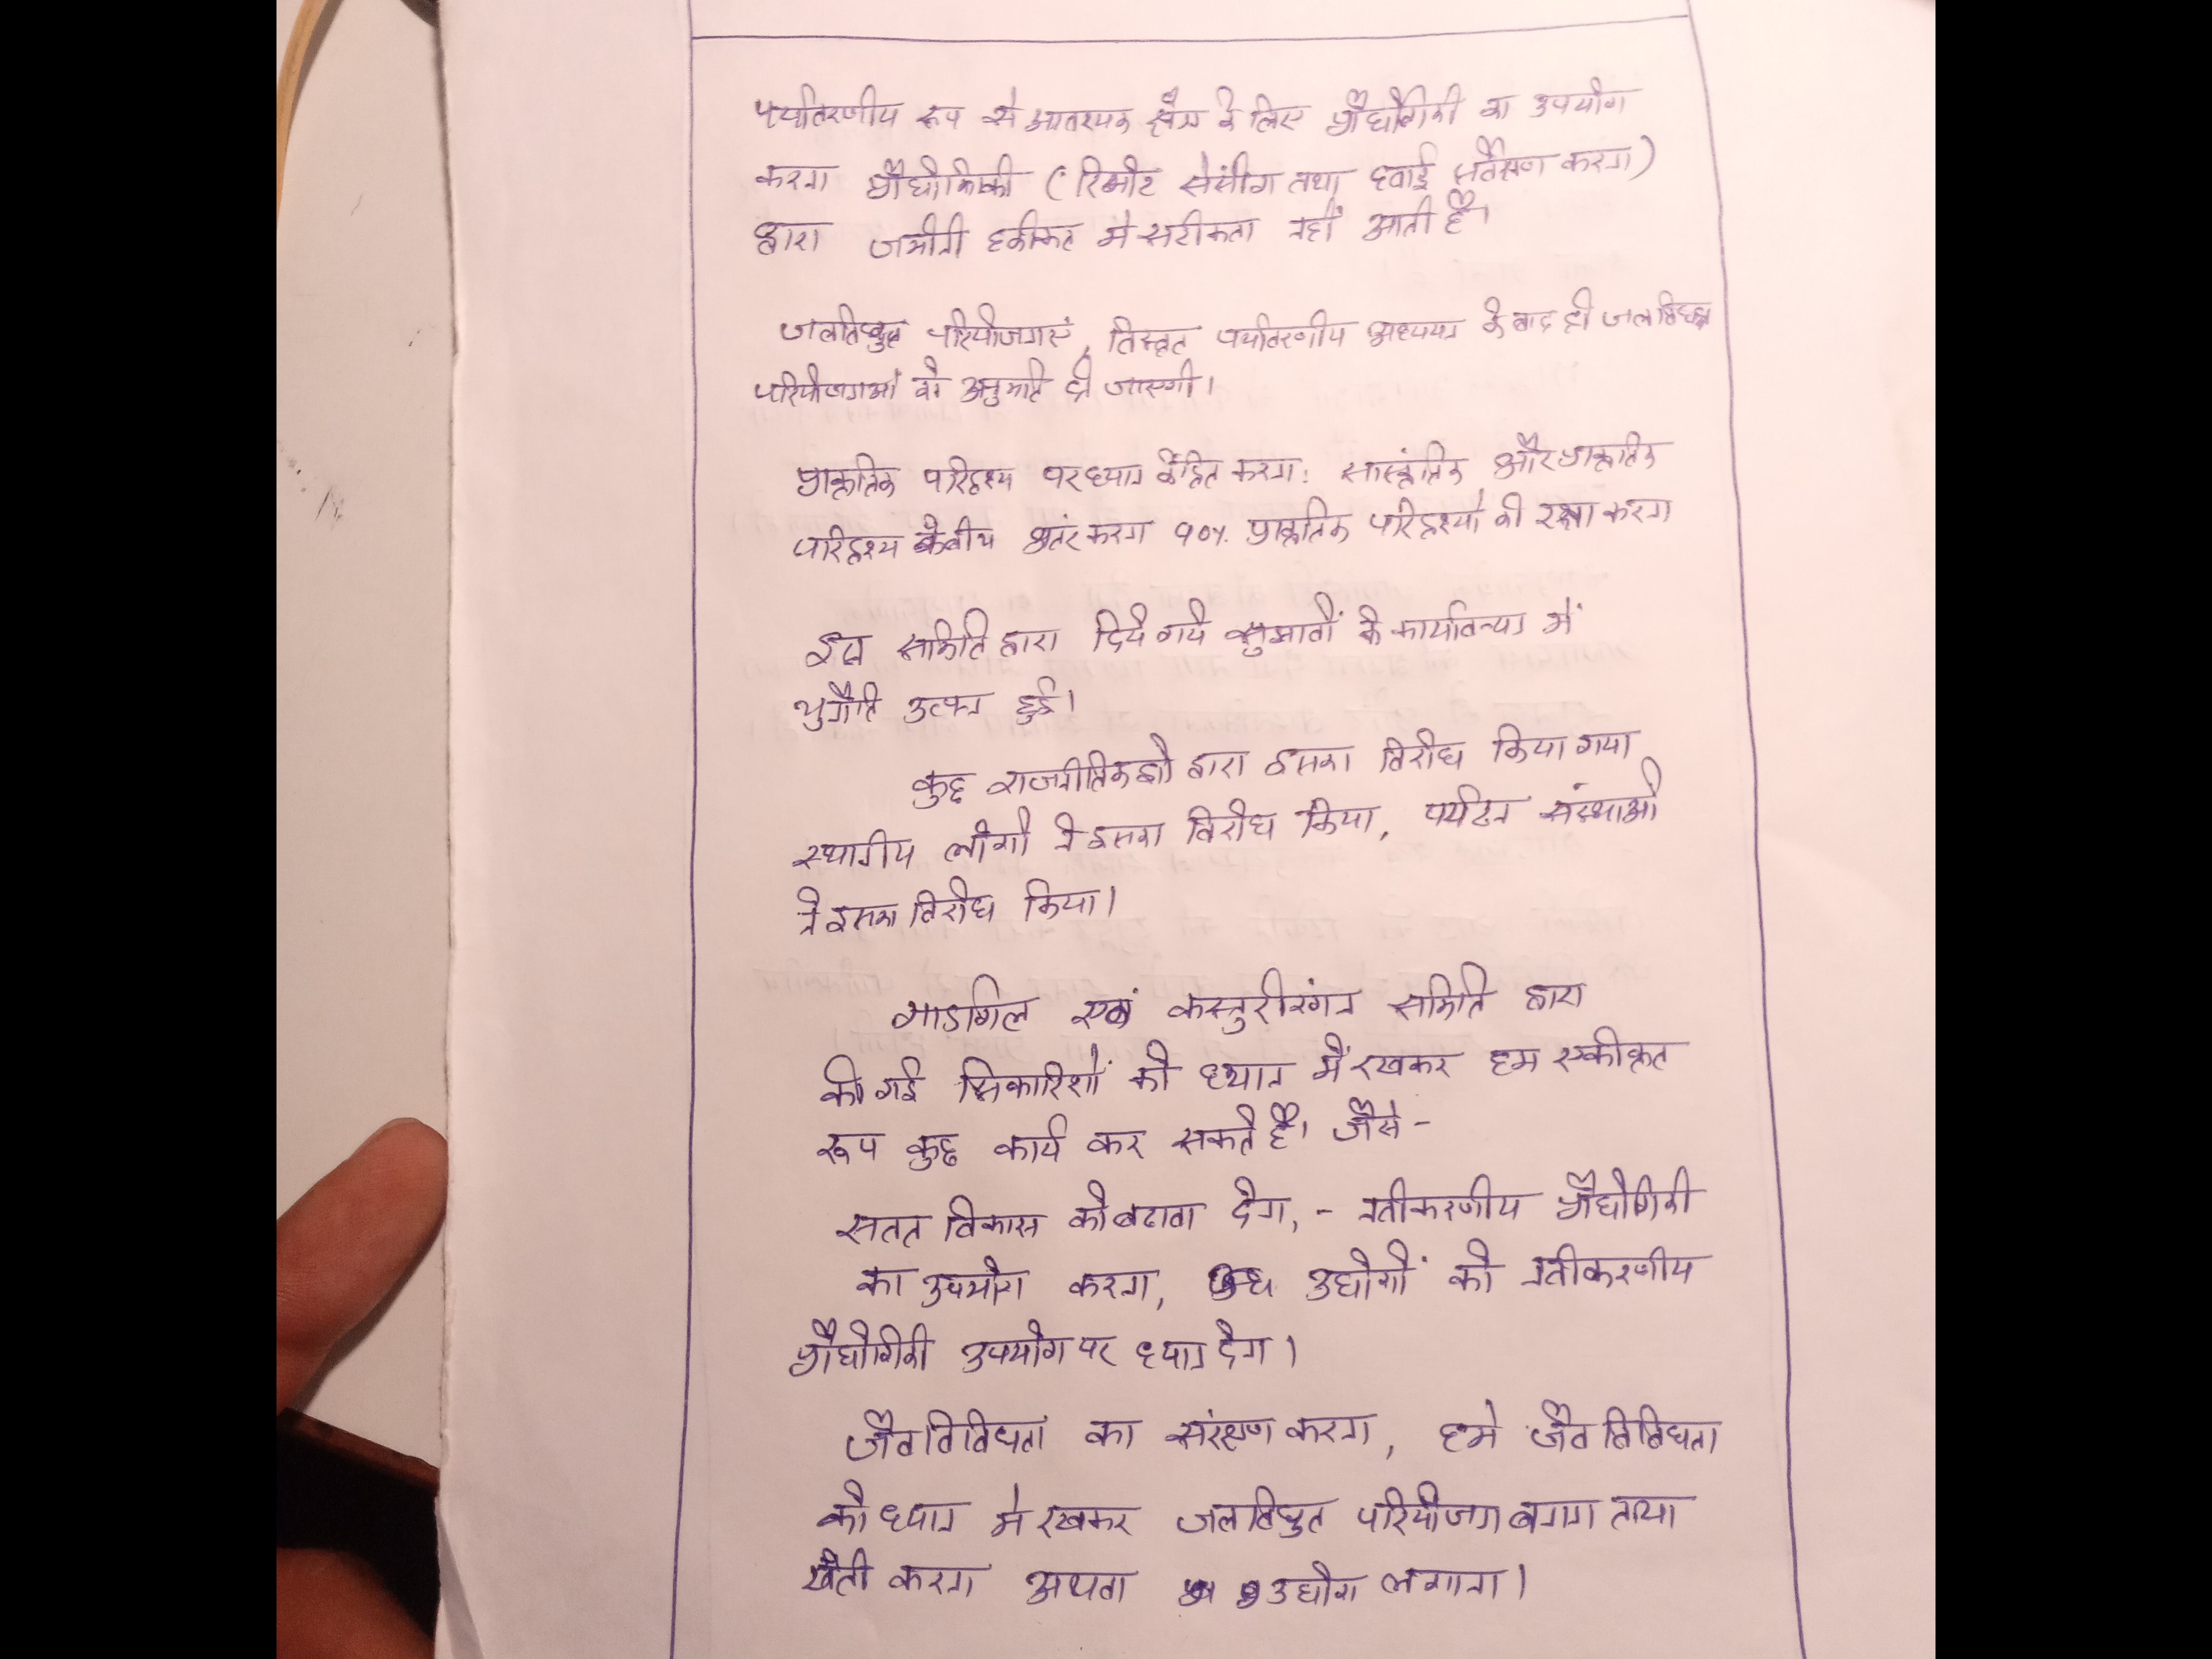 पर्यावरणीय रूप से आवश्यक क्षेत्र के लिए प्रौद्योगिकी का उपयोग
करना प्रौद्योगिकी (रिमोट सेंसींग तथा हवाई सर्वेक्षण करना)
द्वारा जमीनी हकीकत मे सटीकता नहीं आती है।
जलविद्युत परियोजनाएं, विस्तृत पर्यावरणीय अध्ययन के बाद ही जलविद्युत
परियोजनाओं को अनुमति दी जाएगी।
प्राकृतिक परिदृश्य पर ध्यान केंद्रित करना: सास्कृंतिक और प्राकृतिक
परिदृश्य के बीच अतंर करना 90%. प्राकृतिक परिदृश्यो की रक्षा करना
इस समिति द्वारा दिये गये सुझावों के कार्यावन्यन में
चुनौति उत्पन्न हुई।
कुछ राजनीतिकज्ञो द्वारा इसका विरोध किया गया
स्थानीय लोगो ने इसका विरोध किया, पर्यटन संस्थाओ
ने इसका विरोध किया।
माडगिल एवं कस्तुरीरंगन समिति द्वारा
की गई सिफारिशों को ध्यान में रखकर हम एकीकृत
रूप कुछ कार्य कर सकते है। जैसे -
सतत विकास को बढावा देना, - नवीकरणीय प्रौद्योगिकी
का उपयोग करना, उद्योगों को नवीकरणीय
प्रौद्योगिकी उपयोग पर ध्यान देना।
जैव विविधता का संरक्षण करना, हमे जैव विविधता
को ध्यान मे रखकर जलविद्युत परियोजना बनाना तथा
खेती करना अथवा उद्योग लगाना।